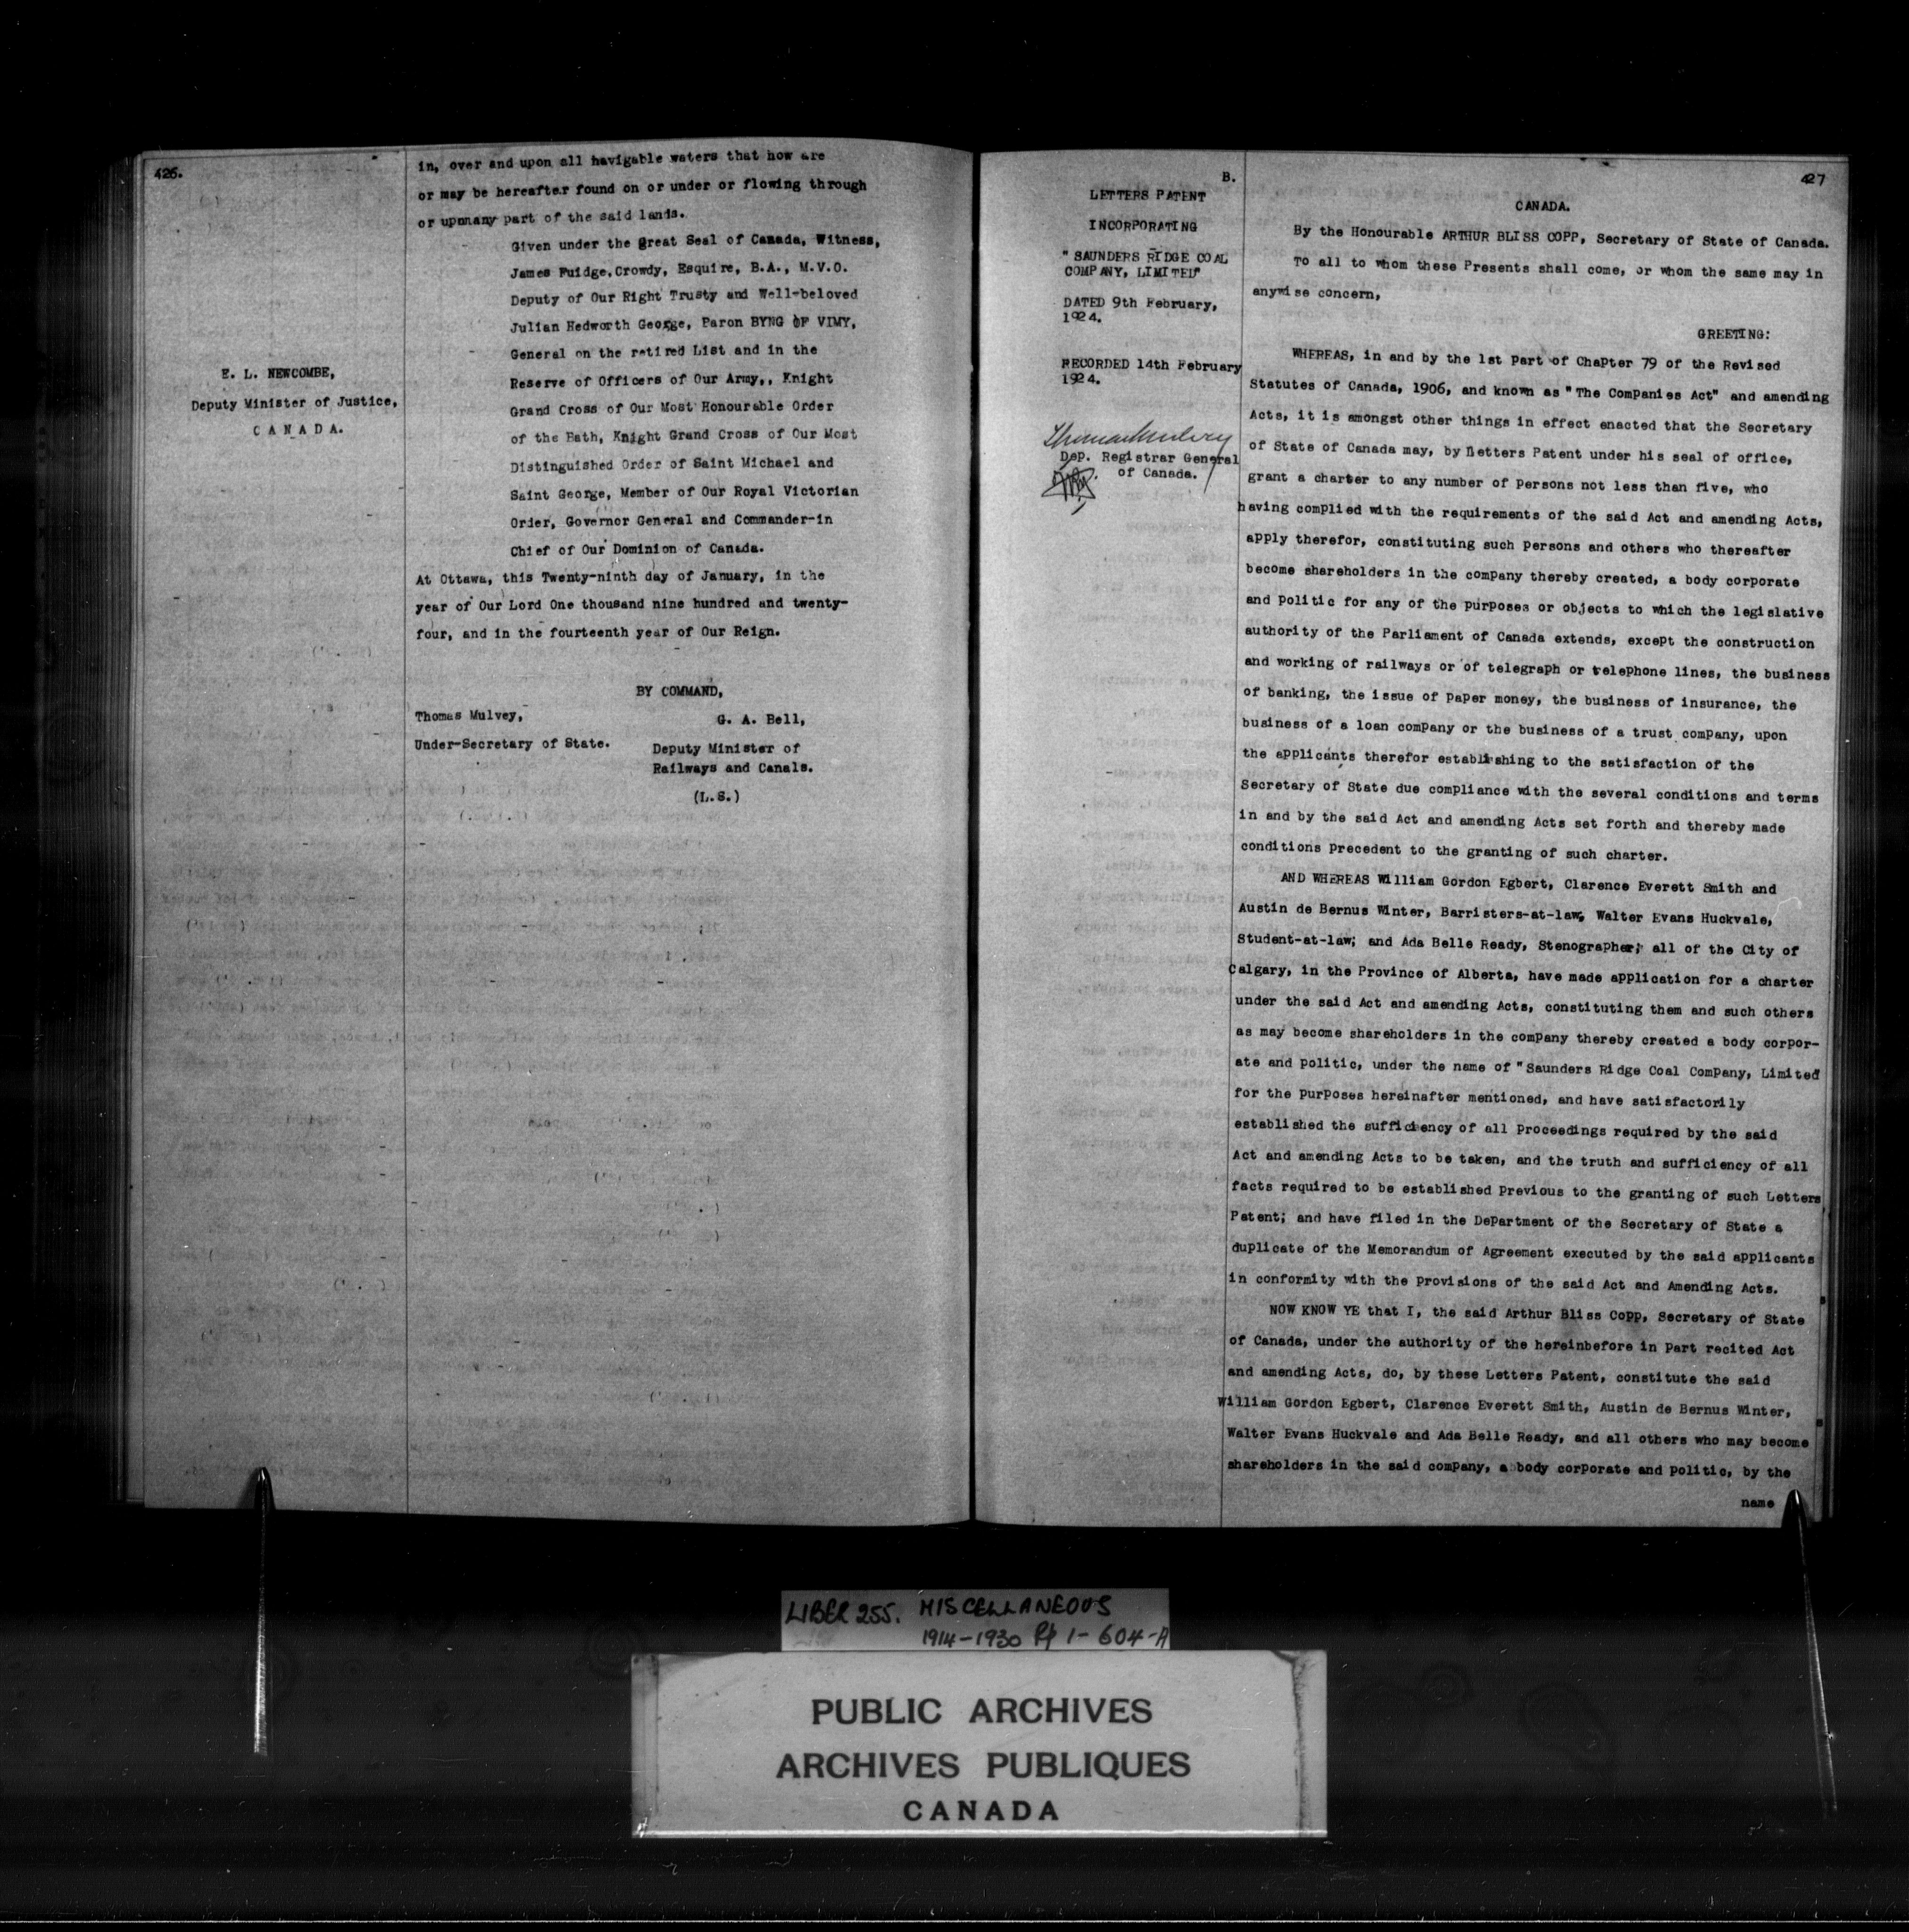 426.
in, over and upon all havigable waters that how are
or may be hereafter found on or under or flowing through
or uponany part of the said lands.
Given under the great Seal of Canada, Witness,
James Fuidge,Crowdy, Esquire, B.A., M.V.O.
Deputy of Our Right Trusty and Well-beloved
Julian Hedworth George, Paron BYNG OF VIMY,
General on the retired List and in the
Reserve of Officers of Our Army,, Knight
Grand Cross of Our Most Honourable Order
of the Bath, Knight Grand Cross of Our Most
Distinguished Order of Saint Michael and
Saint George, Member of Our Royal Victorian
Order, Governor General and Commander-in
Chief of Our Dominion of Canada.
At Ottawa, this Twenty-ninth day of January, in the
year of Our Lord One thousand nine hundred and twenty-
four, and in the fourteenth year of Our Reign.
E. L. NEWCOMBE,
Deputy Minister of Justice,
CANADA.
BY COMMAND,
Thomas Mulvey,
Under-Secretary of State.
G. A. Bell,
Deputy Minister of
Railways and Canals.
(L.S.)
427
B.
LETTERS PATENT
INCORPORATING
"SAUNDERS RIDGE COAL
COMPANY, LIMITED"
DATED 9th February,
1924.
RECORDED 14th February
1924.
Thomas Mulvey
Dep. Registrar General
of Canada.
CANADA.
By the Honourable ARTHUR BLISS COPP, Secretary of State of Canada.
To all to whom these Presents shall come, or whom the same may in
anywise concern,
GREETING:
WHEREAS, in and by the 1st part of Chapter 79 of the Revised
Statutes of Canada, 1906, and known as "The Companies Act" and amending
Acts, it is amongst other things in effect enacted that the Secretary
of State of Canada may, by Letters Patent under his seal of office,
grant a charter to any number of persons not less than five, who
having complied with the requirements of the said Act and amending Acts,
apply therefor, constituting such persons and others who thereafter
become shareholders in the company thereby created, a body corporate
and politic for any of the purposes or objects to which the legislative
authority of the Parliament of Canada extends, except the construction
and working of railways or of telegraph or telephone lines, the business
of banking, the issue of paper money, the business of insurance, the
business of a loan company or the business of a trust company, upon
the applicants therefor establishing to the satisfaction of the
Secretary of State due compliance with the several conditions and terms
in and by the said Act and amending Acts set forth and thereby made
conditions precedent to the granting of such charter.
AND WHEREAS William Gordon Egbert, Clarence Everett Smith and
Austin de Bernus Winter, Barristers-at-law, Walter Evans Huckvale,
Student-at-law; and Ada Belle Ready, Stenographer; all of the City of
Calgary, in the Province of Alberta, have made application for a charter
under the said Act and amending Acts, constituting them and such others
as may become shareholders in the company thereby created a body corpor-
ate and politic, under the name of "Saunders Ridge Coal Company, Limited"
for the purposes hereinafter mentioned, and have satisfactorily
established the sufficiency of all proceedings required by the said
Act and amending Acts to be taken, and the truth and sufficiency of all
facts required to be established previous to the granting of such Letters
Patent; and have filed in the Department of the Secretary of State a
duplicate of the Memorandum of Agreement executed by the said applicants
in conformity with the provisions of the said Act and Amending Acts.
NOW KNOW YE that I, the said Arthur Bliss Copp, Secretary of State
of Canada, under the authority of the hereinbefore in part recited Act
and amending Acts, do, by these Letters Patent, constitute the said
William Gordon Egbert, Clarence Everett Smith, Austin de Bernus Winter,
Walter Evans Huckvale and Ada Belle Ready, and all others who may become
shareholders in the said company, a body corporate and politic, by the
name
LIBER 255. MISCELLANEOUS
1914-1930 Pp 1-604-A
PUBLIC ARCHIVES
ARCHIVES PUBLIQUES
CANADA